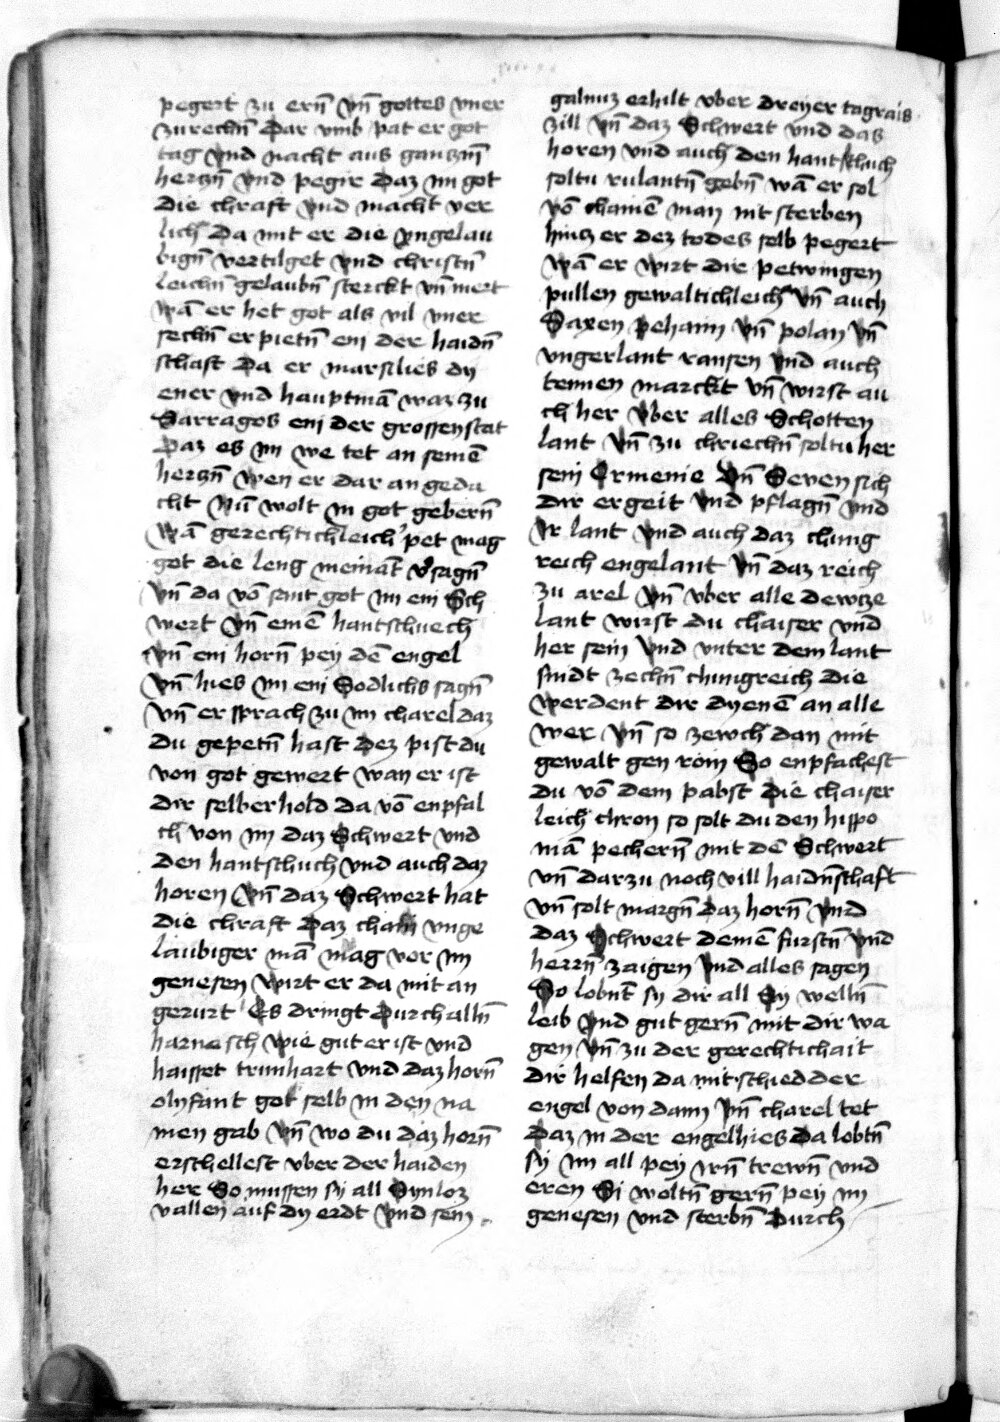 pegert zu ern̄ vn̄ gottes vner
zurechn̄ Dar vmb pat er got
tag vnd nacht aus gantzm̄
hertzn̄ vnd pegir Daz im got
die chraft vnd macht ver
lich Da mit er die vngelau
bign̄ vertilget vnd christn̄
leichn̄ gelaubn̄ sterckt vn̄ mert
wā er het got als vil vner
sechn̄ erpietn̄ ein der haidn̄
schaft Da er marsilies dy
ener vnd hauptmā waz zu
Sarragos ein der grossen stat
Daz es im we tet an seinē
hertzn̄ wen er dar an geda
cht Nū wolt in got gebern̄
wā gerechtichleich pet mag
got die leng niemāt v̓sagn̄
vn̄ da vō sant got im ein Sch
wert vn̄ einē hantschuech
vn̄ ein horn̄ pey dē engel
vn̄ hies im ein Sodlichs sagn̄
vn̄ er sprach zu im charel daz
du gepetn̄ hast dez pist du
von got gewert wan er ist
dir selber hold da vō enpfal
ch von im daz Schwert vnd
den hantschuch vnd auch daz
horen vn̄ daz Schwert hat
die chraft Daz chain vnge
laubiger mā mag vor im
genesen wirt er da mit an
gerurt Es dringt Durch alln̄
harnasch wie gut er ist vnd
haisset trunhart vnd daz horn̄
olyfant got selb in den na
men gab vn̄ wo du daz horn̄
erschellest vber der haiden
her So mussen sy all Synloz
vallen auf dy erdt vnd sein
galmiz erhilt vber dreyer tagrais
zill vn̄ daz Schwert vnd das
horen vnd auch den hantschuch
soltu rulantn̄ gebn̄ wā er sol
vō chainē man nit sterben
hintz er dez todes selb pegert
wā er wirt dir petwingen
pullen gewaltichleich vn̄ auch
Saxen pehaim vn̄ polan vn̄
vngerlant raussen vnd auch
tennen marckt vn̄ wirst au
ch her vber alles Schotten
lant vn̄ zu chriechn̄ soltu her
sein Ermenie vn̄ Seven sich
dir ergeit vnd pflagn̄ vnd
ir lant vnd auch daz chung
reich engelant vn̄ daz reich
zu arel vn̄ vber alle dewtze
lant wirst du chaiser vnd
her sein vnd vnter dem lant
sindt zechn̄ chunigreich die
werdent dir dyenē an alle
wer vn̄ so zewch dan mit
gewalt gen rom So enpfachest
du vō dem pabst die chaiser
leich chron so solt du den hispo
niā pechern̄ mit dē Schwert
vn̄ darzu noch vill haidn̄schaft
vn̄ solt margn̄ daz horn̄ vnd
daz Schwert deinē furstn̄ vnd
herrn̄ zaigen vnd alles sagen
So lobnt̄ sy dir all Sy welln̄
leib vnd gut gern̄ mit dir wa
gen vn̄ zu der gerechtichait
dir helfen da mit schied der
engel von dann vn̄ charel tet
daz in der engel hies Da lobtn̄
sy im all pey irn̄ trewn̄ vnd
eren Si woltn̄ gern̄ pey im
genesen vnd sterbn̄ Durch